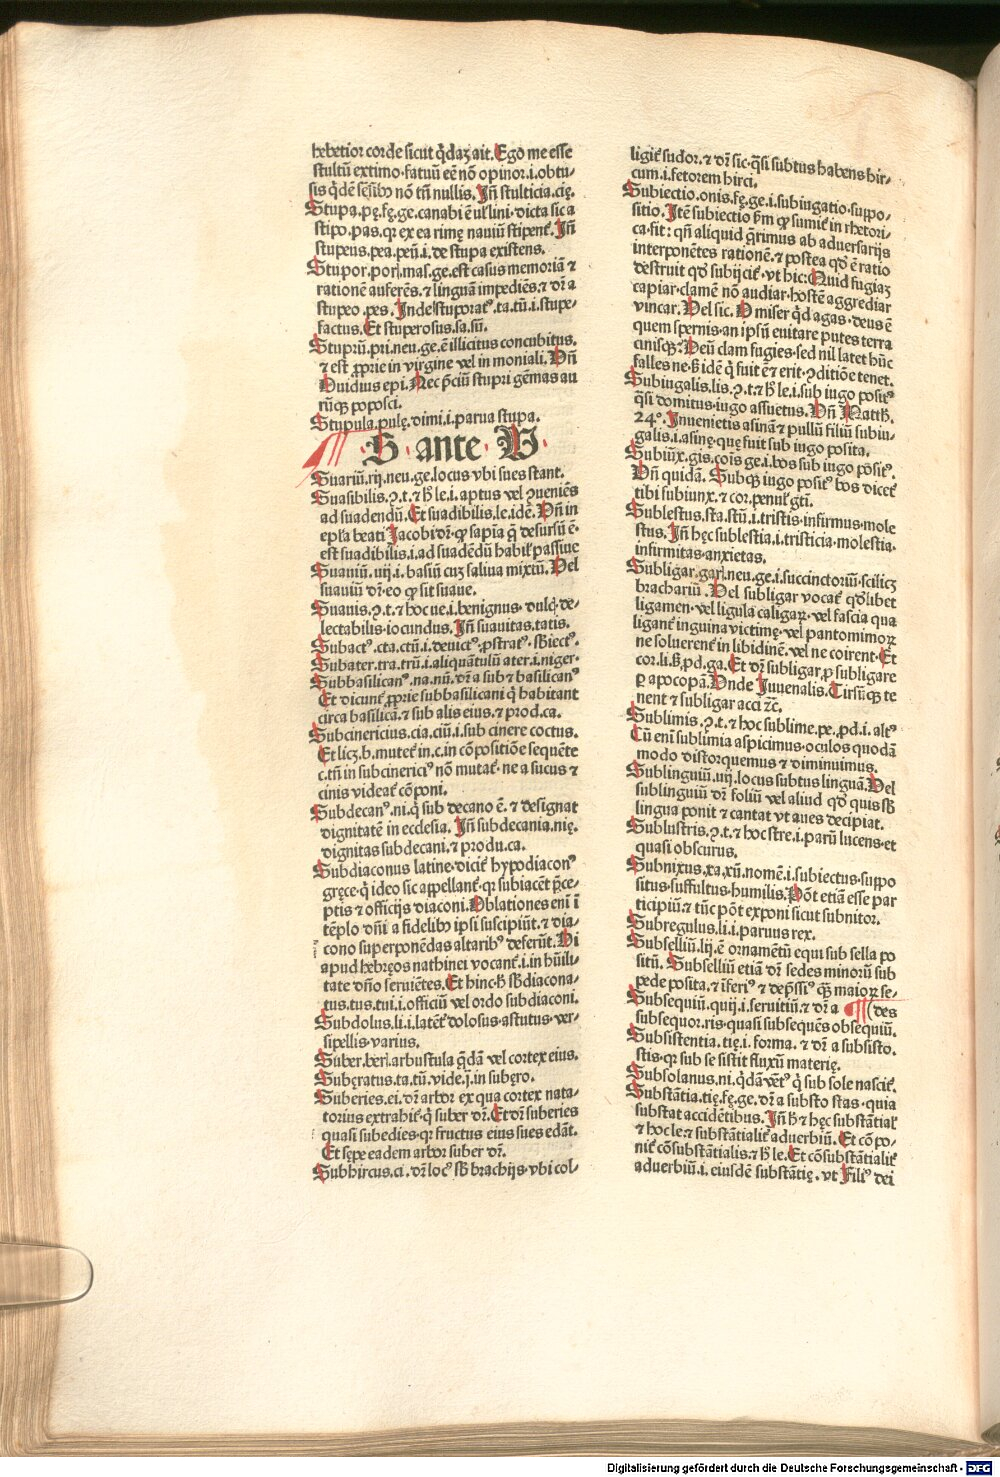 hebetior corde sicut q̄daꝫ ait. Ego me esse
stultū extimo. fatuū eē nō opinor. i. obtu-
sis q̄dē sēsibꝰ nō tn̄ nullis. Jn̄ stulticia. cię.
Stupa. pę. fę. ge. canabi ē ul̓ lini. dicta sic a
stipo. pas. qꝛ ex ea rimę nauiū stipent᷑. Jn̄
stupeus. pea. peū. i. de stupa existens.
Stupor. poꝛ. mas. ge. est casus memoriā ⁊
rationē auferēs. ⁊ linguā impediēs. ⁊ dr̄ a
stupeo. pes. Jnde stuporatꝰ. ta. tū. i. stupe-
factus. Et stuperosus. sa. sū.
Stuprū. pri. neu. ge. ē illicitus concubitus.
⁊ est ꝓprie in virgine vel in moniali. Vn̄
Ouidius epi. Nec p̄ciū stupri gēmas au
rūqꝫ poposci.
Stupula. pulę. dimi. i. parua stupa.
S ante V
Suariū. rij. neu. ge. locus vbi sues stant.
Suasibilis. ꝯ. t. ⁊ h̓ le. i. aptus vel ꝯueniēs
ad suadendū. Et suadibilis. le. idē. Vn̄ in
epl̓a beati Jacobi dr̄. ꝙ sapīa q̄ desursū ē.
est suadibilis. i. ad suadēdū habil̓ passiue
Suauiū. uij. i. basiū cuꝫ saliua mixtū. Vel
suauiū dr̄. eo ꝙ sit suaue.
Suauis. ꝯ. t. ⁊ hoc ue. i. benignus. dulcꝭ. de-
lectabilis. iocundus. Jn̄ suauitas. tatis.
Subactꝰ. cta. ctū. i. deuictꝰ. ꝓstratꝰ. sb̓iectꝰ.
Subater. tra. trū. i. aliquātulū ater. i. niger.
Subbasilicanꝰ. na. nū. dr̄ a sub ⁊ basilicanꝰ
Et dicunt᷑ ꝓprie subbasilicani q̄ habitant
circa basilicā. ⁊ sub alis eius. ⁊ prod. ca.
Subcinericius. cia. ciū. i. sub cinere coctus.
Et licꝫ. b. mutet᷑ in. c. in cōpositiōe sequēte
c. tn̄ in subcinericiꝰ nō mutat᷑. ne a sucus ⁊
cinis videat᷑ cōponi.
Subdecanꝰ. ni. q̄ sub decano ē. ⁊ designat
dignitatē in ecclesia. Jn̄ subdecania. nię.
dignitas subdecani. ⁊ produ. ca.
Subdiaconus latine. dicit᷑ hypodiaconꝰ
gręce. q̄ ideo sic appellant᷑. qꝛ subiacēt p̄ce-
ptis ⁊ officijs diaconi. Oblationes eni ī
tēplo dn̄i a fidelibꝰ ipsi suscipiūt. ⁊ dia-
cono superponēdas altaribꝰ deferūt. Hi
apud hebręos nathinei vocant᷑. i. in hūili-
tate dn̄o seruiētes. Et hinc h̓ sb̓diacona-
tus. tus. tui. i. officiū vel ordo subdiaconi.
Subdolus. li. i. latēt᷑ dolosus. astutus. ver-
sipellis. varius.
Suber. beꝛ. arbustula q̄dā vel cortex eius.
Subęratus. ta. tū. vide. j. in subęro.
Suberies. ei. dr̄ arbor ex qua cortex nata-
torius extrahit᷑. q̄ suber dr̄. Et dr̄ suberies
quasi subedies. qꝛ fructus eius sues edāt.
Et sępe eadem arbor suber dr̄.
Subhircus. ci. dr̄ locꝰ sb̓ brachijs. vbi col-
ligit᷑ sudor. ⁊ dr̄ sic. q̄si subtus habens hir-
cum. i. fetorem hirci.
Subiectio. onis. fę. ge. i. subiugatio. suppo-
sitio. Jtē subiectio ẜm ꝙ sumit᷑ in rhetori-
ca. fit: qn̄ aliquid q̄rimus ab aduersarijs
interponētes rationē. ⁊ postea qd̓ ē ratio
destruit qd̓ subijcit᷑. vt hic: Quid fugiaꝫ
capiar. clamē nō audiar. hostē aggrediar
vincar. Vel sic. O miser qd̓ agas. deus ē
quem spernis. an ipsū euitare putes terra
cinisqꝫ. Deū clam fugies. sed nil latet hūc
falles ne. ẜ idē q̄ fuit ē ⁊ erit. ꝯditiōe tenet.
Subiugalis. lis. ꝯ. t. ⁊ h̓ le. i. sub iugo positꝰ
q̄si domitus. iugo assuetus. Vn̄ Matth.
24°. Jnuenietis asinā ⁊ pullū filiū subiu-
galis. i. asinę. quę fuit sub iugo posita.
Subiūx. gis. cōis ge. i. bos sub iugo positꝰ.
Vn̄ quidā. Subqꝫ iugo positꝰ bos dicet᷑
tibi subiunx. ⁊ cor. penul̓ gt̄i.
Sublestus. sta. stū. i. tristis. infirmus. mole
stus. Jn̄ hęc sublestia. i. tristicia. molestia.
infirmitas. anxietas.
Subligar. gaꝛ. neu. ge. i. succinctoriū. scilicꝫ
brachariū. Vel subligar vocat᷑ qd̓libet
ligamen. vel ligula caligaꝝ. vel fascia qua
ligant᷑ inguina victimę. vel pantomimoꝝ
ne soluerent᷑ in libidinē. vel ne coirent. Et
cor. li. ẜ ꝓd. ga. Et dr̄ subligar. ꝓ subligare
ꝑ apocopā. Vnde Juuenalis. Tirsūqꝫ te
nent ⁊ subligar acci ⁊c̄.
Sublimis. ꝯ. t. ⁊ hoc sublime. pe. ꝓd. i. altꝰ
Cū eni sublimia aspicimus. oculos quodā
modo distorquemus ⁊ diminuimus.
Sublinguiū. uij. locus subtus linguā. Vel
sublinguiū dr̄ foliū vel aliud qd̓ quis sb̓
lingua ponit ⁊ cantat vt aues decipiat.
Sublustris. ꝯ. t. ⁊ hoc stre. i. parū lucens. et
quasi obscurus.
Subnixus. xa. xū. nomē. i. subiectus. suppo
situs. suffultus. humilis. Pōt etiā esse par
ticipiū. ⁊ tūc pōt exponi sicut subnitor.
Subregulus. li. i. paruus rex.
Subselliū. lij. ē ornamētū equi sub sella po
sitū. Subselliū etiā dr̄ sedes minorū sub
pede posita. ⁊ īferiꝰ ⁊ dep̄ssiꝰ qꝫ maioꝝ se-
Subsequiū. quij. i. seruitiū. ⁊ dr̄ a (des
subsequor. ris. quasi subsequēs obsequiū.
Subsistentia. tię. i. forma. ⁊ dr̄ a subsisto.
stis. qꝛ sub se sistit fluxū materię.
Subsolanus. ni. q̄dā vētꝰ q̄ sub sole nascit᷑.
Substātia. tię. fę. ge. dr̄ a substo stas. quia
substat accidētibus. Jn̄ h̓ ⁊ hęc substātial̓
⁊ hoc le. ⁊ substātialit᷑ aduerbiū. Et cōpo-
nit᷑ cōsubstātialis. ⁊ h̓ le. Et cōsubstātialit᷑
aduerbiū. i. eiusdē substātię. vt Filiꝰ dei
Digitalisierung gefördert durch die Deutsche Forschungsgemeinschaft - DFG